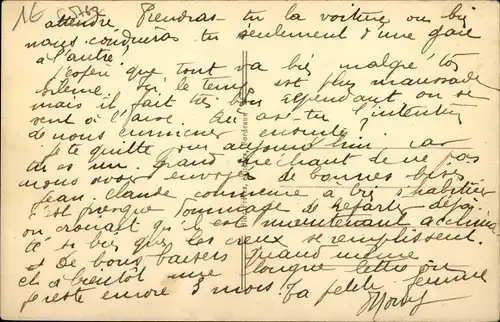 attendre. Prendras-tu la voiture ou bien
nous conduiras tu seulement d'une gare
à l'autre.
J'espère que tout va bien malgré ton
silence. Ici le temps est plus maussade
mais il fait très bon cependant on se
sent à l'aise. Où as-tu l'intention
de nous emmener ensuite?
Je te quitte pour aujourd'hui car
tu es un grand méchant de ne pas
nous avoir envoyé de bonnes bises
Jean Claude commence à bien s'habituer
c'est presque dommage de repartir déjà
on croyait qu'il est maintenant acclima
té si bien que les creux se remplissent.
De bons baisers quand même
et à bientôt une longue lettre ou
je reste encore 3 mois. Ta petite femme